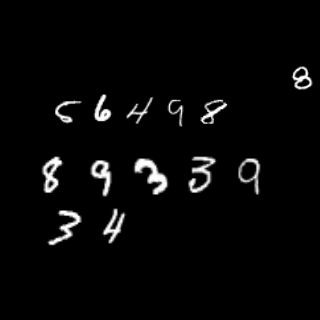 8
56498
89339
34